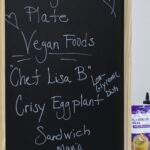 Plate
Vegan Foods
"Chef Lisa B"
Low-Glycemic
Dish
Crisy Eggplant
Sandwich
Mayo